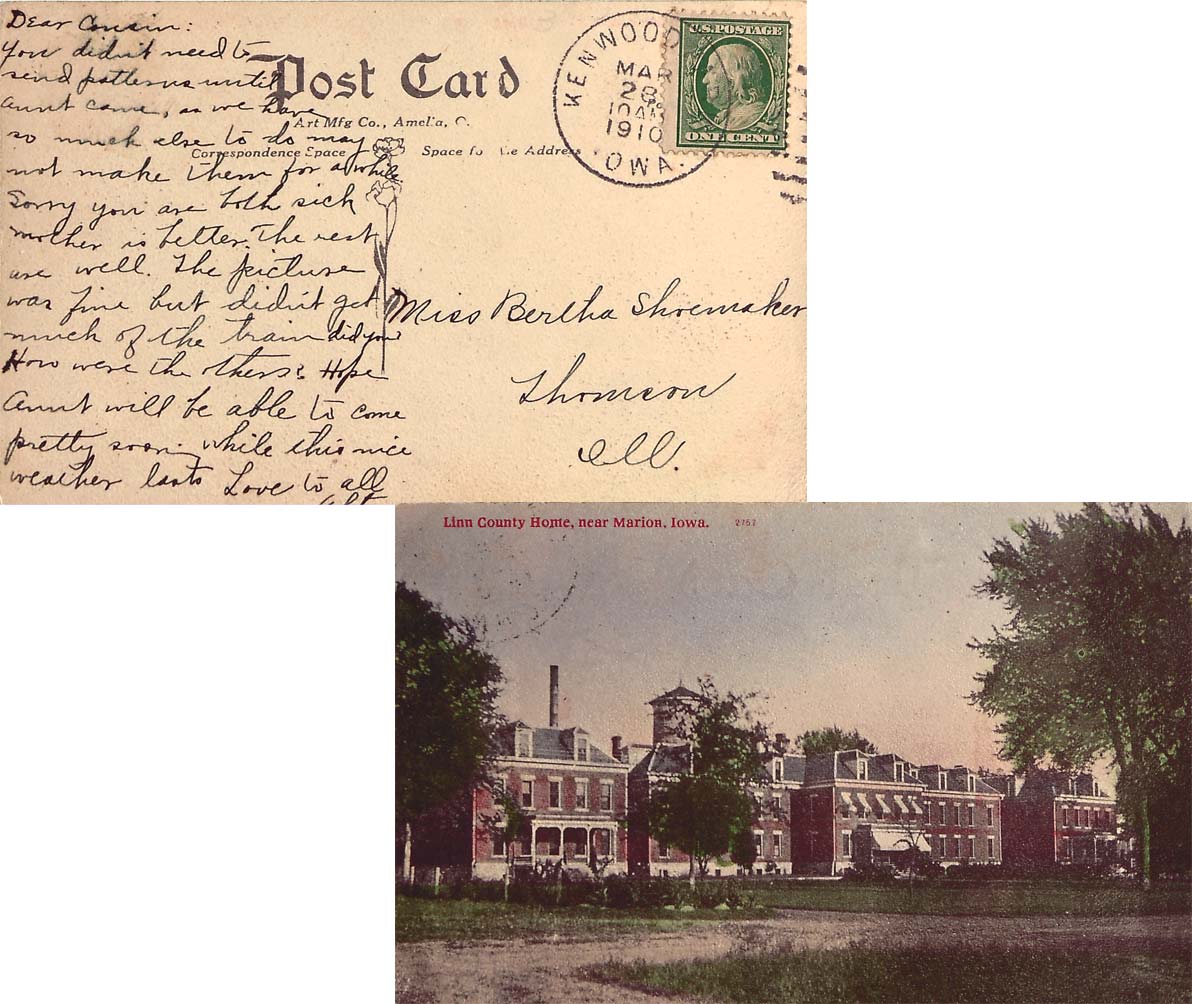 Dear Cousin:
You didn't need to
send patterns until
aunt came, as we have
so much else to do may
not make them for a while
Sorry you are both sick
mother is better. The rest
are well. The picture
was fine but didn't get
much of the train did you?
How were the others? Hope
Aunt will be able to come
pretty soon while this nice
weather lasts Love to all
Post Card
Art Mfg Co., Amelia, O.
Correspondence Space
Space fo he Address
KENWOOD
MAR
28
10AM
1910
OWA.
U.S. POSTAGE
ONE CENT
Miss Bertha Shoemaker
Thomson
Ill.
Linn County Home, near Marion, Iowa. 2757